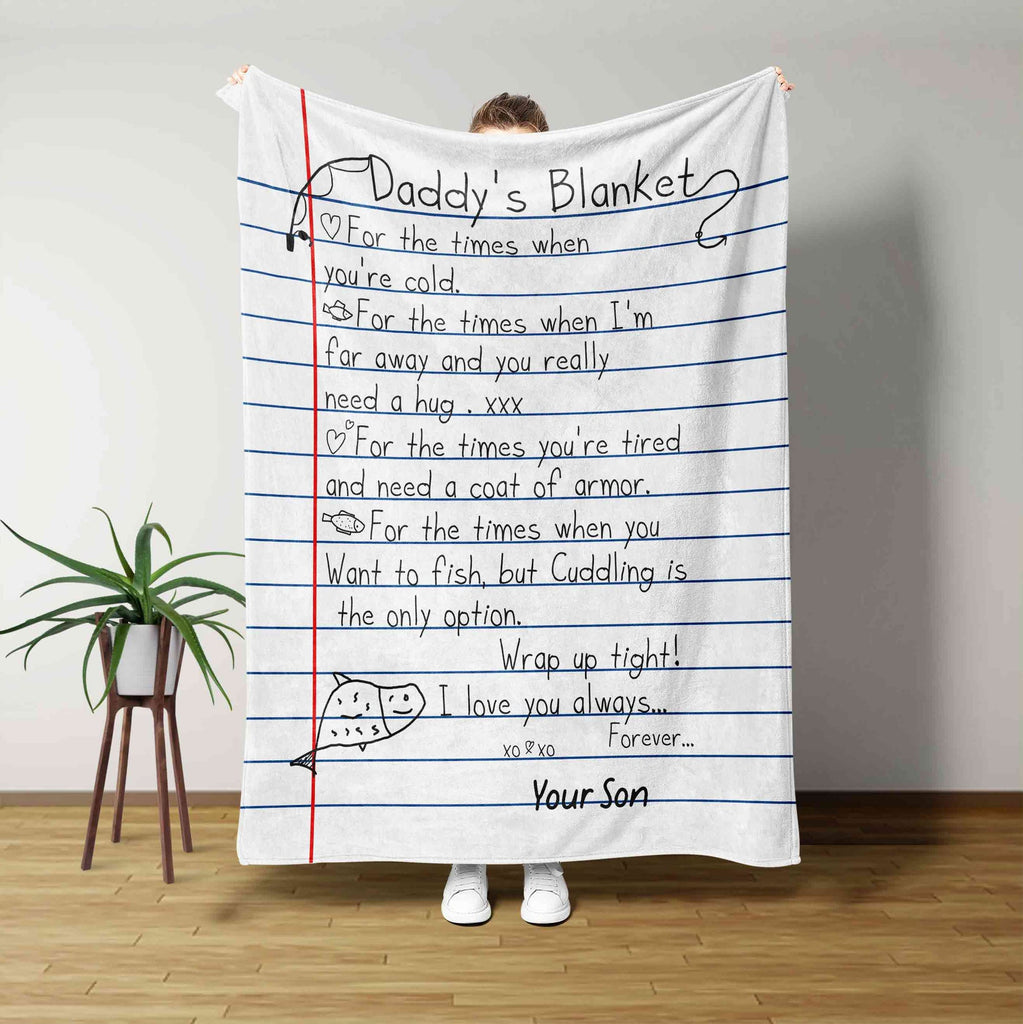 Daddy's Blanket
For the times when
you're cold.
For the times when I'm
far away and you really
need a hug . xxx
For the times you're tired
and need a coat of armor.
For the times when you
Want to fish, but Cuddling is
the only option.
Wrap up tight!
I love you always...
Forever...
xo xo
Your Son